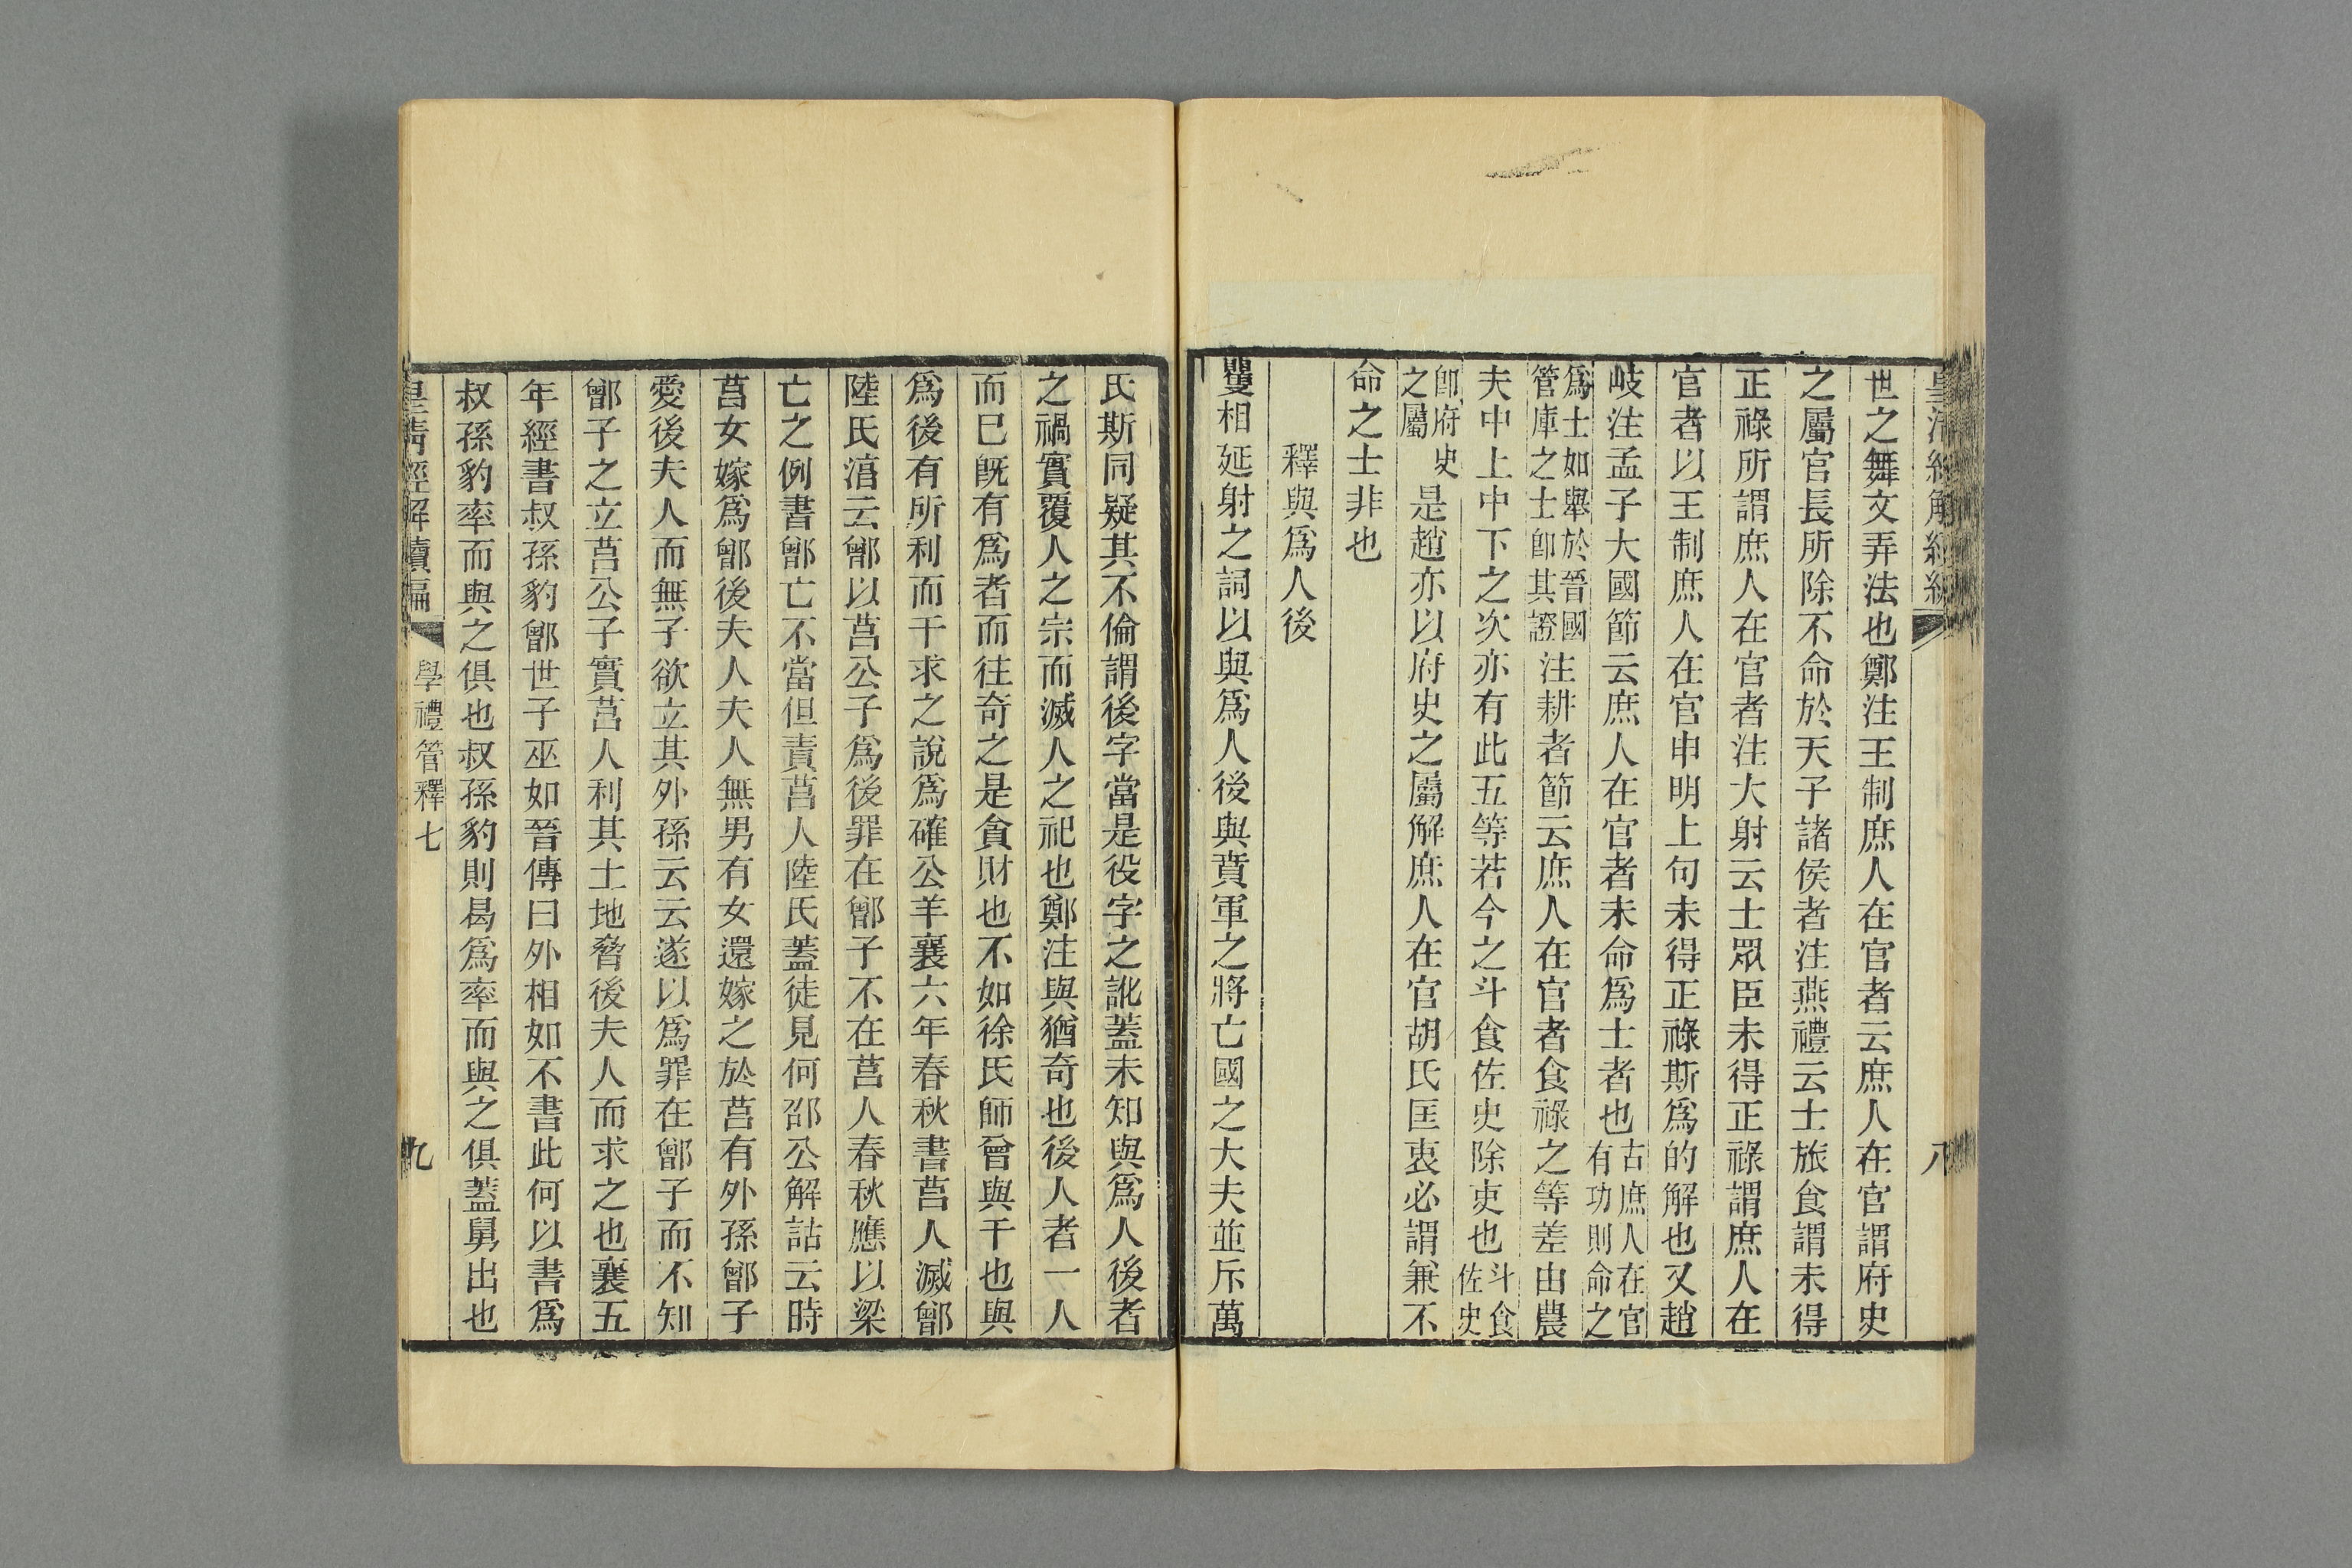 皇清經解續編 八
世之舞文弄法也鄭注王制庶人在官者云庶人在官謂府史
之屬官長所除不命於天子諸侯者注燕禮云士旅食謂未得
正祿所謂庶人在官者注大射云士眾臣未得正祿謂庶人在
官者以王制庶人在官申明上句未得正祿斯爲的解也又趙
岐注孟子大國節云庶人在官者未命爲士者也古庶人在官有功則命之
爲士如舉於晉國管庫之士卽其證注耕者節云庶人在官者食祿之等差由農
夫中上中下之次亦有此五等若今之斗食佐史除吏也斗食佐史
卽府史之屬是趙亦以府史之屬解庶人在官胡氏匡衷必謂兼不
命之士非也
釋與爲人後
矍相延射之詞以與爲人後與賁軍之將亡國之大夫並斥萬
氏斯同疑其不倫謂後字當是役字之訛蓋未知與爲人後者
之禍實覆人之宗而滅人之祀也鄭注與猶奇也後人者一人
而已旣有爲者而往奇之是貪財也不如徐氏師曾與干也與
爲後有所利而干求之說爲確公羊襄六年春秋書莒人滅鄫
陸氏淳云鄫以莒公子爲後罪在鄫子不在莒人春秋應以梁
亡之例書鄫亡不當但責莒人陸氏蓋徒見何邵公解詁云時
莒女嫁爲鄫後夫人夫人無男有女還嫁之於莒有外孫鄫子
愛後夫人而無子欲立其外孫云云遂以爲罪在鄫子而不知
鄫子之立莒公子實莒人利其土地脅後夫人而求之也襄五
年經書叔孫豹鄫世子巫如晉傳曰外相如不書此何以書爲
叔孫豹率而與之俱也叔孫豹則曷爲率而與之俱蓋舅出也
皇清經解續編 學禮管釋七 九